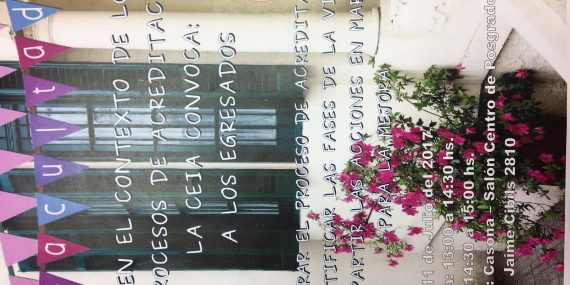 acultad
EN EL CONTEXTO DE LO
ROCESOS DE ACREDITAC
LA CEIA CONVOCA:
A LOS EGRESADOS
RAR EL PROCESO DE ACREDITA
TIFICAR LAS FASES DE LA VI
PARTIR LAS ACCIONES EN MAR
PARA LA MEJORA
11 de Julio del 2017
a: 13:00 a 14:30 hs.
14:30 a 15:00 hs.
: Casona – Salon Centro de Posgrado
Jaime Cibils 2810